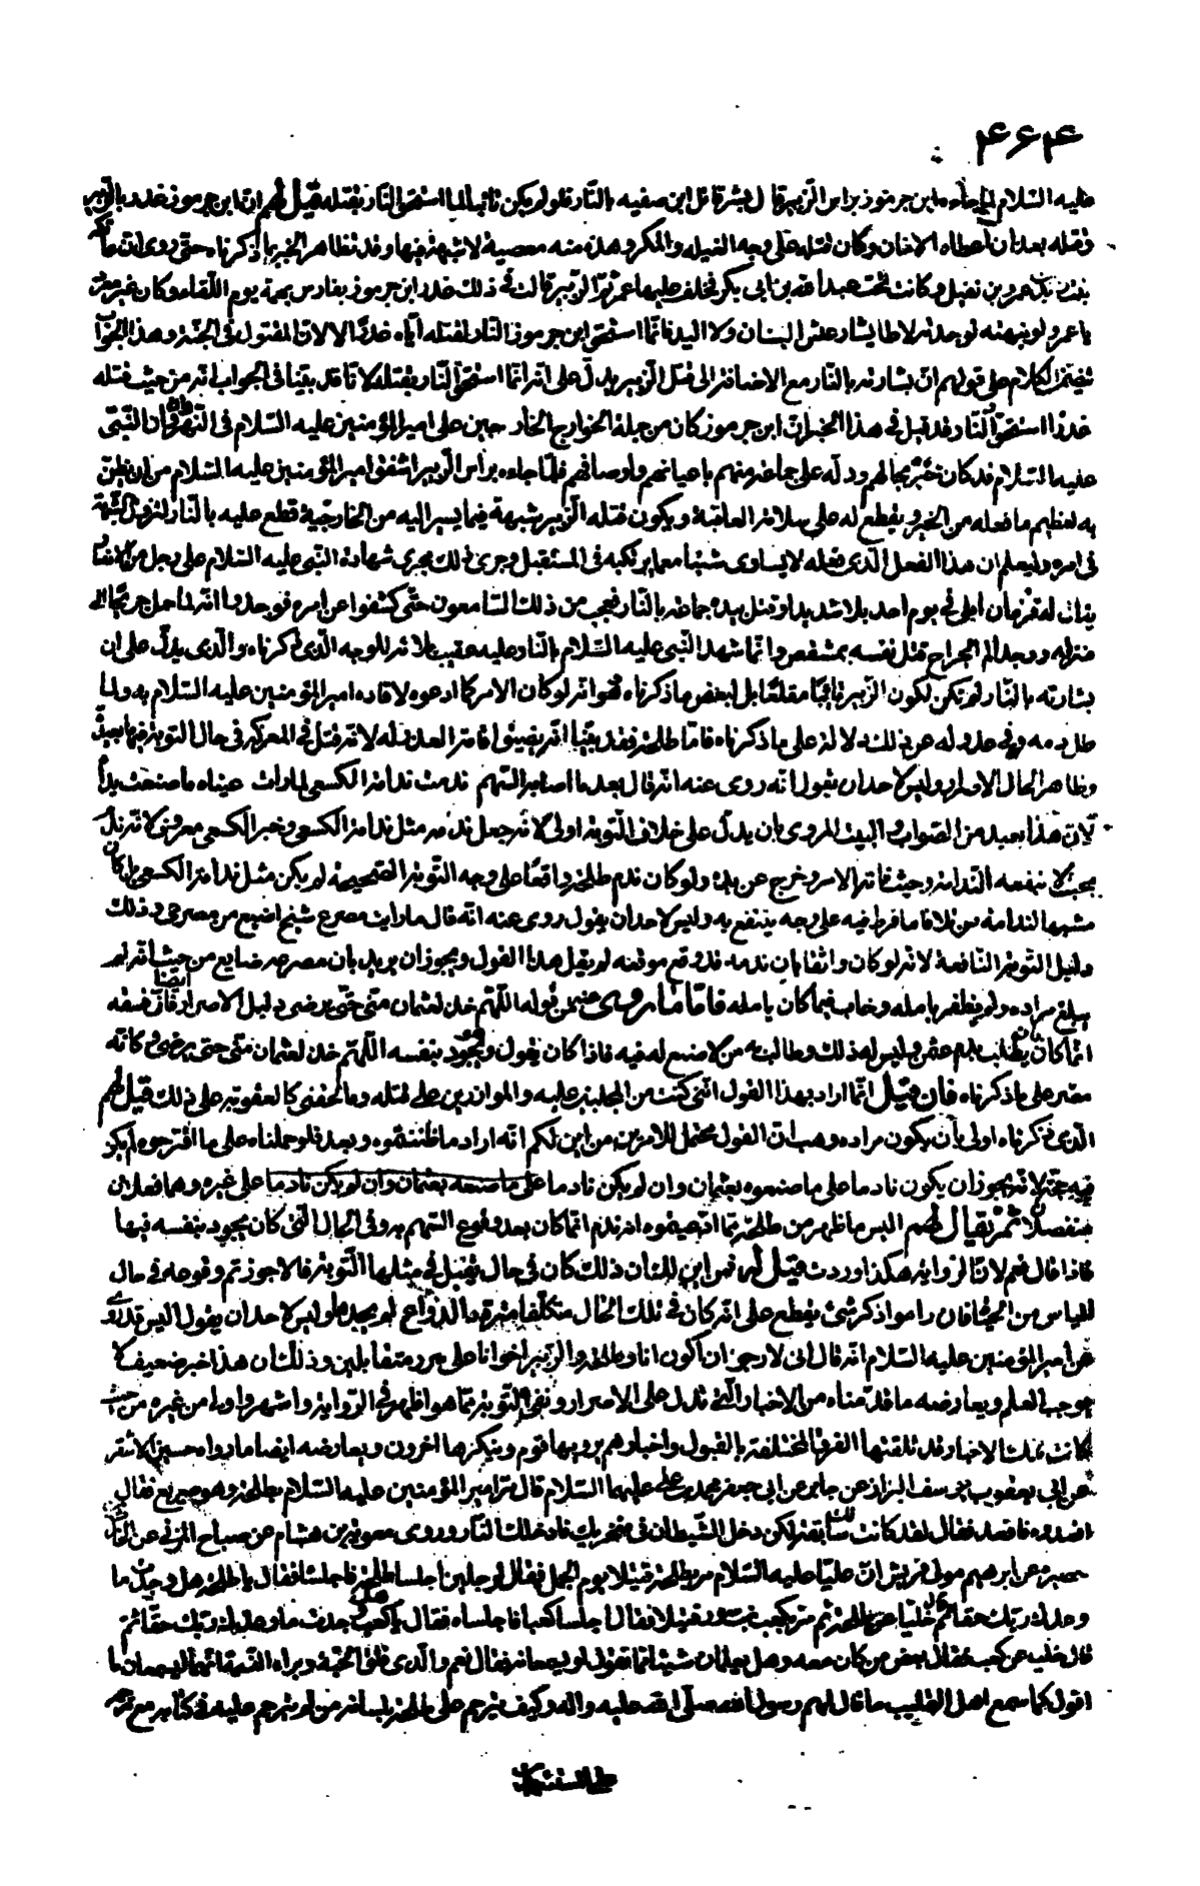 ۴۶۴
عليه السلام لما جاءه ابن جرموز براس الزبير قال بشر قاتل ابن صفيه بالنار فلو لم يكن تائبا لما استحق النار بقتله قيل لهم ان ابن جرموز غدر بالزبير
وقتله بعد ان اعطاه الامان وكان قتله على وجه الغيله والمكر وهذه منه معصية لا شبهة فيها وقد تظاهر الخبر بما ذكرناه حتى روى ان عاتكه
بنت زيد بن عمرو بن نفيل وكانت تحت عبد الله بن ابى بكر فخلف عليها عمر ثم الزبير قالت فى ذلك غدر ابن جرموز بفارس بهمة يوم اللقاء وكان غير معرد
يا عمرو لو نبهته لوجدته لا طايشا رعش البنان ولا اليد فانما استحق ابن جرموز النار لقتله اياه غدرا لا لان المقتول فى الجنة وهذا الجواب
يتضمن الكلام على قولهم ان بشارته بالنار مع الاضافة الى قتل الزبير يدل على انه انما استحق النار بقتله لانا قد بينا فى الجواب انه من حيث قتله
غدرا استحق النار وقد قيل فى هذا الخبر ان ابن جرموز كان من جملة الخوارج الخارجين على امير المؤمنين عليه السلام فى النهروان وان النبى
عليه السلام قد كان خبره بحالهم ودله على جماعة منهم باعيانهم واوصافهم فلما جاءه براس الزبير اشفق امير المؤمنين عليه السلام من ان يظن
به لعظيم ما فعله من الخير ويقطع له على سلامة العاقبة ويكون قتله الزبير شبهة فيما يصير اليه من الخارجية قطع عليه بالنار لتزول الشبهة
فى امره وليعلم ان هذا الفعل الذى فعله لا يساوى شيئا مع ما يرتكبه فى المستقبل وجرى ذلك مجرى شهادة النبى عليه السلام على رجل من الانصار
يقال له قزمان ابلى فى يوم احد بلاء شديدا وقتل بيده جماعة بالنار فعجب من ذلك السامعون حتى كشفوا عن امره فوجدوا انه لما حمل جريحا الى
منزله ووجد الم الجراح قتل نفسه بمشقص وانما شهد النبى عليه السلام بالنار عليه عقيب بلائه للوجه الذى ذكرناه والذى يدل على ان
بشارته بالنار لم تكن لكون الزبير تائبا مقلعا بل لبعض ما ذكرناه هو انه لو كان الامر كما ادعوه لاقاده امير المؤمنين عليه السلام به ولما
طل دمه وفى عدوله عن ذلك دلالة على ما ذكرناه فاما طلحة فقد بينا انه يضيق اقامة العذر له لانه قتل فى المعركة فى حال التوبة فيها بعيدة
وظاهر الحال الاصرار وليس لاحد ان يقول انه روى عنه انه قال بعد ما اصابه السهم ندمت ندامة الكسعى لما رات عيناه ما صنعت يداه
لان هذا بعيد من الصواب والبيت المروى بان يدل على خلاف التوبة اولى لانه جعل ندمه مثل ندامة الكسعى وخبر الكسعى معروف لانه ندم
بحيث لا تنفعه الندامة وحيث فاته الامر وخرج عن يده ولو كان ندم طلحة واقعا على وجه التوبة الصحيحة لم يكن مثل ندامة الكسعى بل كان
مشبها لندامة من تلافى ما فرط فيه على وجه ينتفع به وليس لاحد ان يقول روى عنه انه قال ما رايت مصرع شيخ اضيع من مصرعى وذلك
دليل التوبة النافعة لانه لو كان واثقا بان ندمه قد وقع موقعه لم يقل هذا القول ويجوز ان يريد بان مصرعه ضايع من حيث انه لم
يبلغ مراده ولم يظفر بامله وخاب فيما كان يامله فاما ما روى عنه من قوله اللهم خذ لعثمان منى حتى يرضى دليل الاصرار فانه نفسه ايضا
انما كان يطلب بدم عثمن وليس له ذلك ومطالبته من لا صنع له فيه فاذا كان يقول ويجود بنفسه اللهم خذ لعثمان منى حتى يرضى وكانه
مقر على ما ذكرناه فان قيل انما اراد بهذا القول اننى كنت من المجلبين عليه والموازرين على قتله وما لحقنى كالعقوبة على ذلك قيل لهم
الذى ذكرناه اولى بان يكون مراده وهب ان القول محتمل للامرين من اين لكم انه اراد ما ظننتموه وبعد فلو حملناه على ما اقترحوه لم يكن
فيه حجة لانه يجوز ان يكون نادما على ما صنعوه بعثمان وان لم يكن نادما على ما صنعه بعثمان وان لم يكن نادما على غيره وهما فعلان
منفصلان ثم يقال لهم اليس ما ظهر من طلحة مما ادعيتموه انه ندم انما كان بعد وقوع السهم به وفى الحال التى كان يجود بنفسه فيها
فاذا قال نعم لان الرواية هكذا وردت قيل له فمن اين لك ان ذلك كان فى حال يقبل فى مثلها التوبة فالاجوزتم وقوعه فى حال
للياس من الحيوة فان راموا ذكر شئ يقطع على انه كان فى تلك الحال متكلفا متردد الدواعى لم يجدوه وليس لاحد ان يقول اليس قد روى
عن امير المؤمنين عليه السلام انه قال انى لارجو ان اكون انا وطلحة والزبير اخوانا على سرر متقابلين وذلك ان هذا خبر ضعيف لا
يوجب العلم ويعارضه ما قدمناه من الاخبار التى تدل على الاصرار ونفى التوبة مما هو اظهر فى الرواية واشهر واولى من غيره من حيث
كانت تلك الاخبار قد تلقتها الفرق المختلفة بالقبول واخبارهم يرويها قوم وينكرها اخرون ويعارضه ايضا ما رواه حسين الاشقر
عن ابى يعقوب يوسف البزاز عن جابر عن ابى جعفر محمد بن على عليهما السلام قال مر امير المؤمنين عليه السلام بطلحة وهو صريع فقال
اقعدوه فاقعد فقال لقد كانت لك سابقة لكن دخل الشيطان فى منخريك فادخلك النار وروى معوية بن هشام عن صباح المزنى عن الحارث
بن حصيرة عن ابرهيم مولى قريش ان عليا عليه السلام مر بطلحة قتيلا يوم الجمل فقال لرجلين اجلسا طلحة فاجلساه فقال يا طلحة هل وجدت ما
وعدك ربك حقا ثم قال خليا عن طلحة ثم مر بكعب بن سور قتيلا فقال اجلسا كعبا فاجلساه فقال يا كعب هل وجدت ما وعدك ربك حقا ثم
قال خليا عن كعب فقال بعض من كان معه وهل يعلمان شيئا مما تقول او يسمعانه فقال نعم والذى فلق الحبة وبراء النسمة انهما ليسمعان ما
اقول كما سمع اهل القليب ما قال لهم رسول الله صلى الله عليه واله وكيف يترحم على طلحة بلسانه من لم يترحم عليه فى كتابه مع